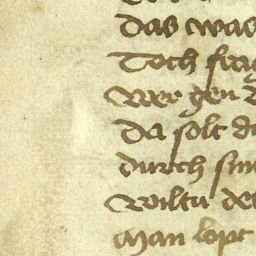 das was
Toch frag
Wer gen
Da solt d
durch sin
Wiltu de
Man lopt